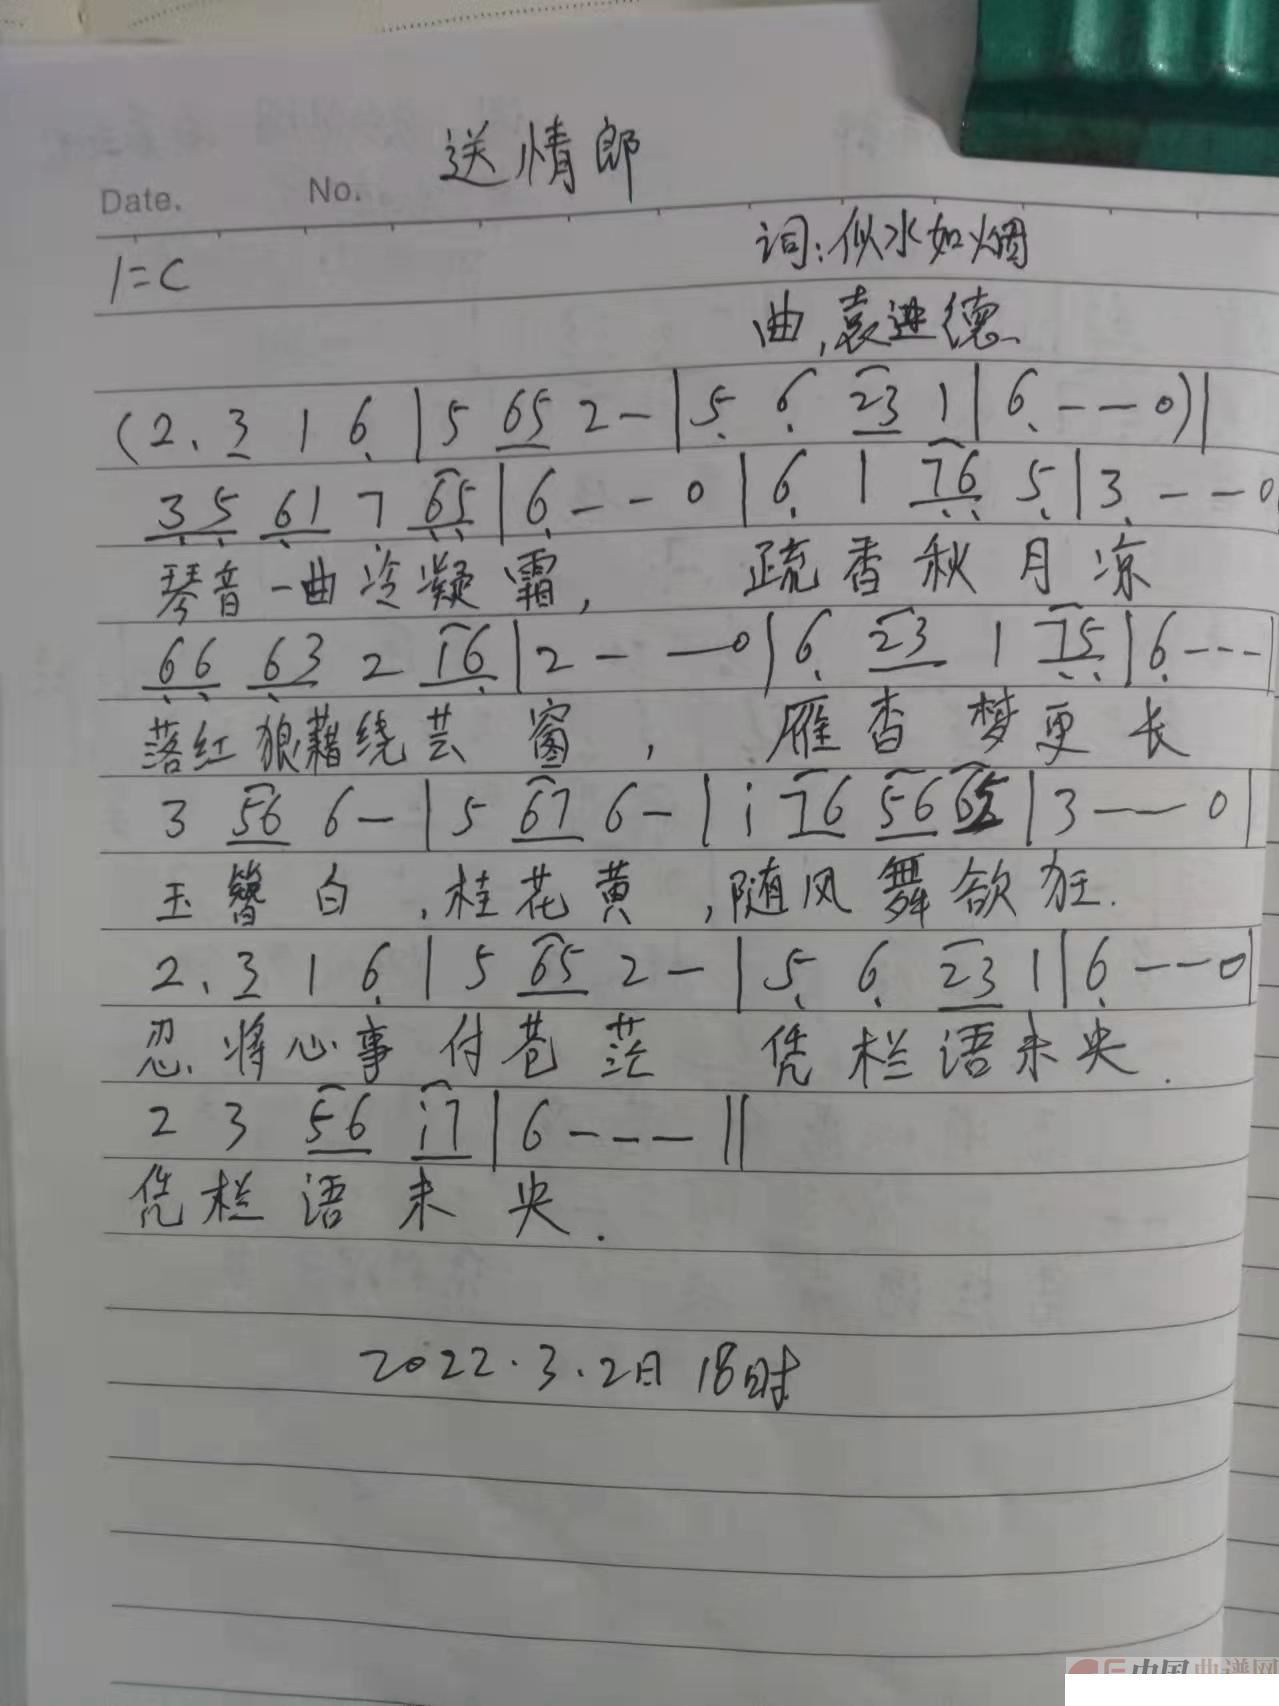 送情郎
Date. No.
1=C 词:似水如烟
曲,袁进德
(2. 3 1 6 | 5 65 2 - | 5 6 23 1 | 6 - - 0)|
35 61 7 65 | 6 - - 0 | 6 1 76 5 | 3 - - 0
琴音一曲冷凝霜, 疏香秋月凉
66 63 2 16 | 2 - - 0 | 6 23 1 75 | 6 - - -
落红狼藉绕芸窗, 雁杳梦更长
3 56 6 - | 5 67 6 - | i 76 56 65 | 3 - - 0 |
玉簪白,桂花黄,随风舞欲狂.
2. 3 1 6 | 5 65 2 - | 5 6 23 1 | 6 - - 0 |
忍将心事付苍茫 凭栏语未央.
2 3 56 i7 | 6 - - - ||
凭栏语未央.
2022.3.2日 18时
中国曲谱网